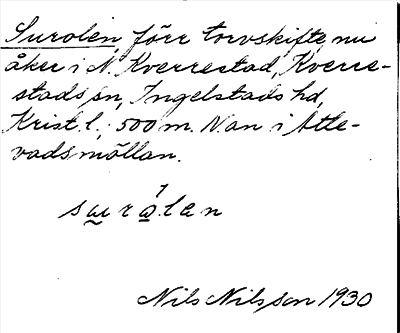 Surolen, förr torvskifte, nu
åker i N. Kverrestad, Kverre-
stads sn, Ingelstads hd,
Krist. l.; 500 m. N om i Atle-
vadsmöllan.
surolen
Nils Nilsson 1930